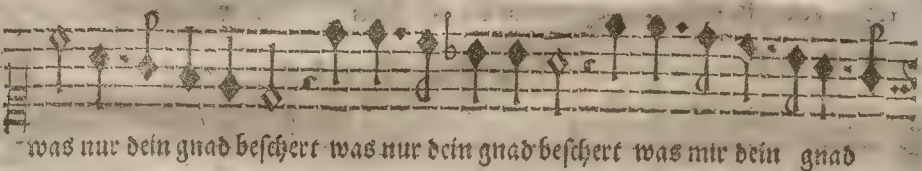 was nur dein gnad beschert was nur dein gnad beschert was mir dein gnad